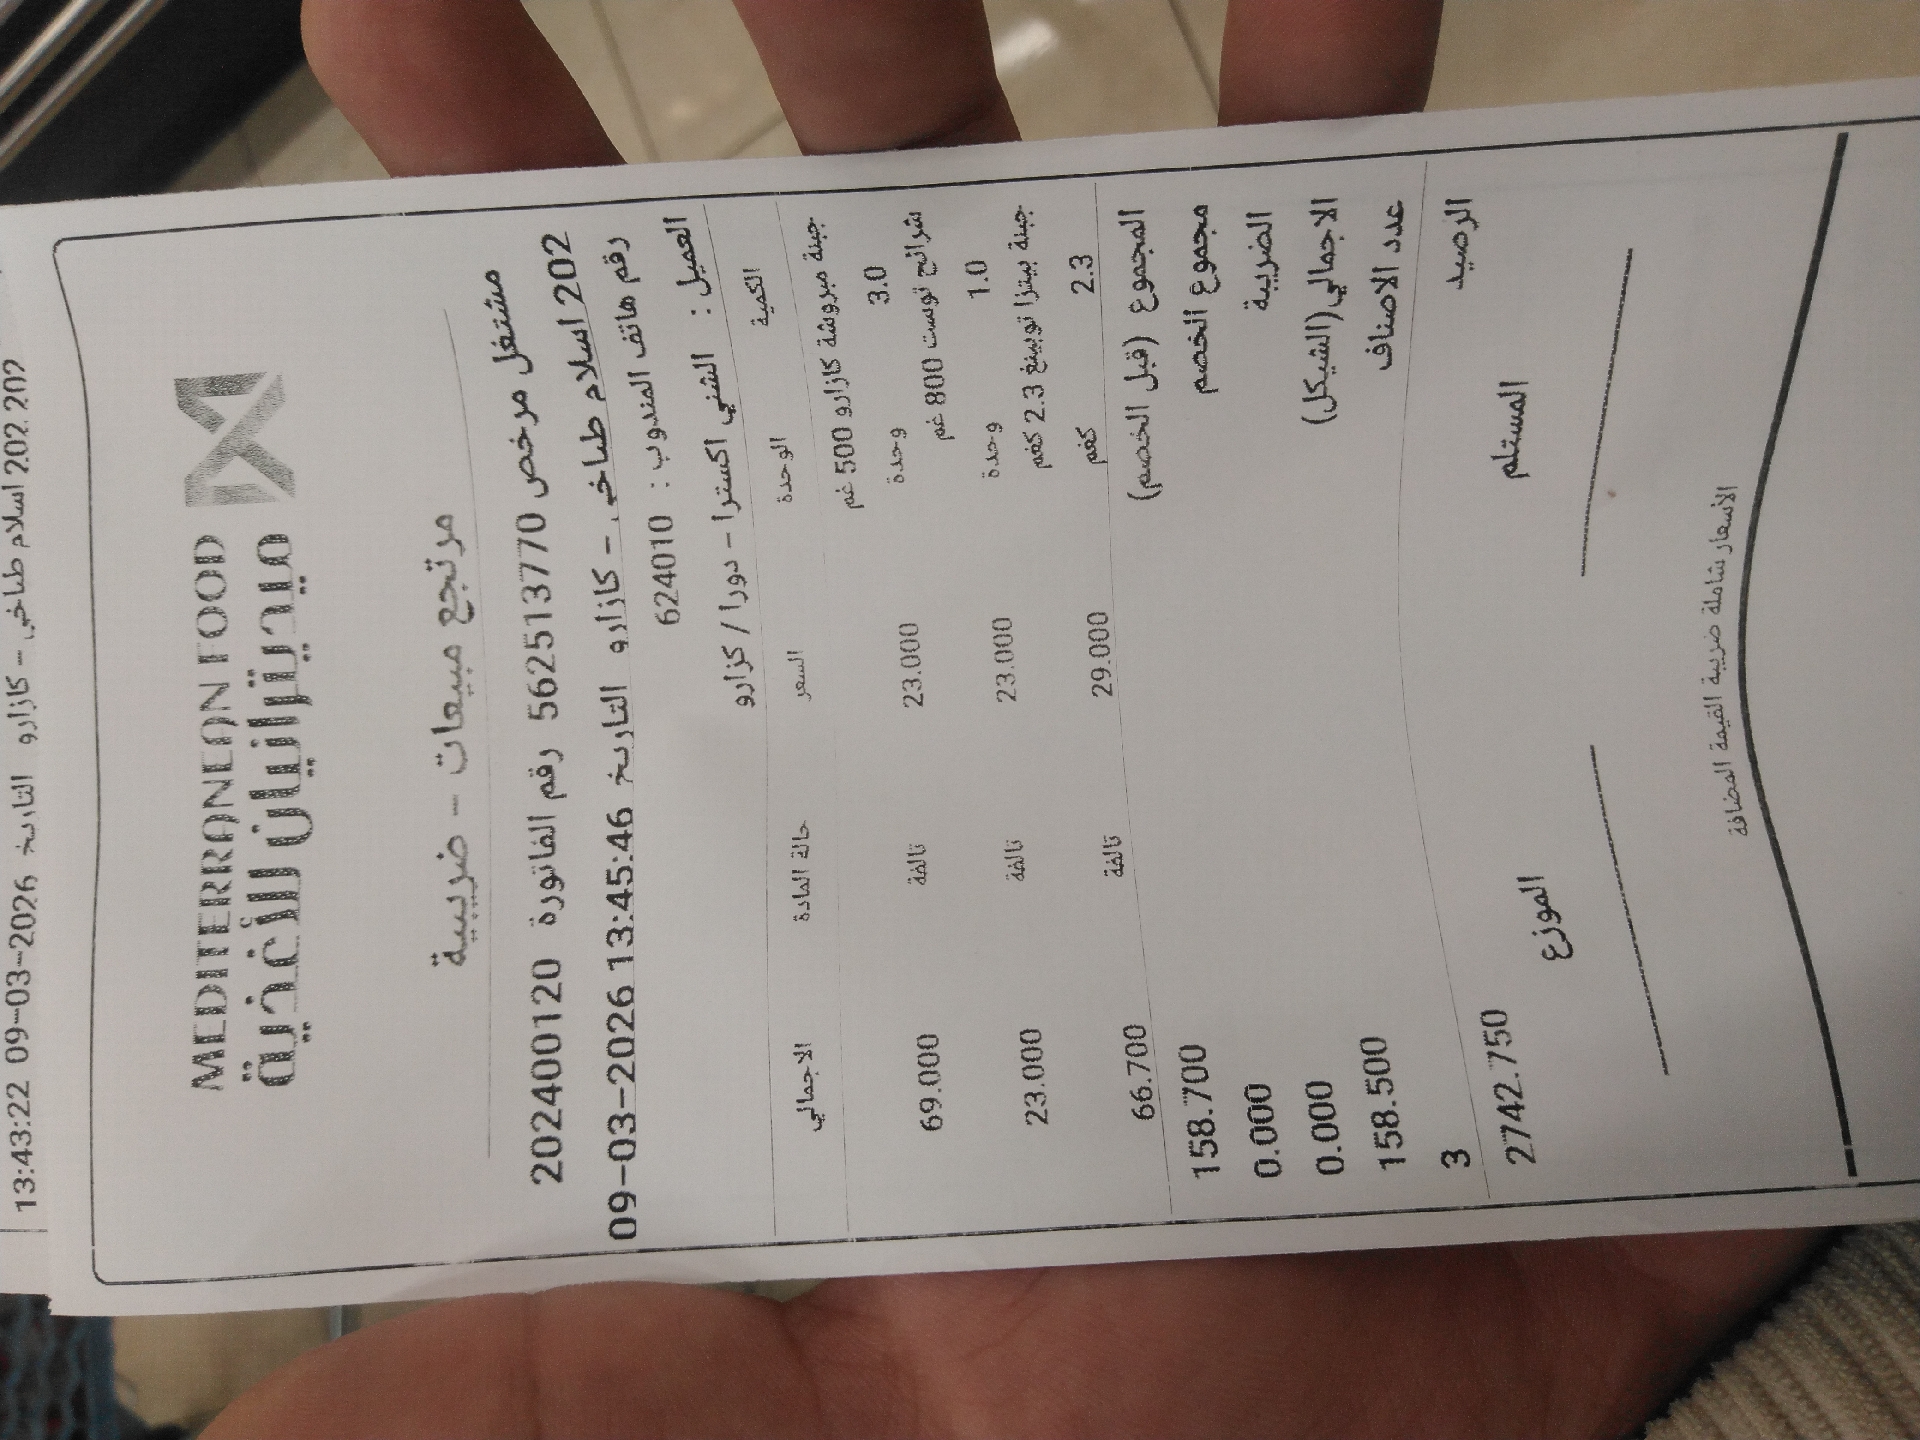 13:43:22 09-03-2026 التاريخ كازارو - اسلام طباخي 202 202
MEDITERRANEAN FOOD
ميديترانيان للأغذية
مرتجع مبيعات - ضريبية
مشتغل مرخص 562513770 رقم الفاتورة 202400120
202 اسلام طباخي - كازارو التاريخ 13:45:46 09-03-2026
رقم هاتف المندوب : 624010
العميل : الشني اكسترا - دورا / كزارو
الكمية الوحدة السعر حالة المادة الاجمالي
جبنة مبروشة كازارو 500 غم
3.0 وحدة 23.000 تالفة 69.000
شرائح توست 800 غم
1.0 وحدة 23.000 تالفة 23.000
جبنة بيتزا توبينغ 2.3 كغم
2.3 كغم 29.000 تالفة 66.700
المجموع (قبل الخصم) 158.700
مجموع الخصم 0.000
الضريبة 0.000
الاجمالي(الشيكل) 158.500
عدد الاصناف 3
الرصيد 2742.750
المستلم الموزع
الأسعار شاملة ضريبة القيمة المضافة